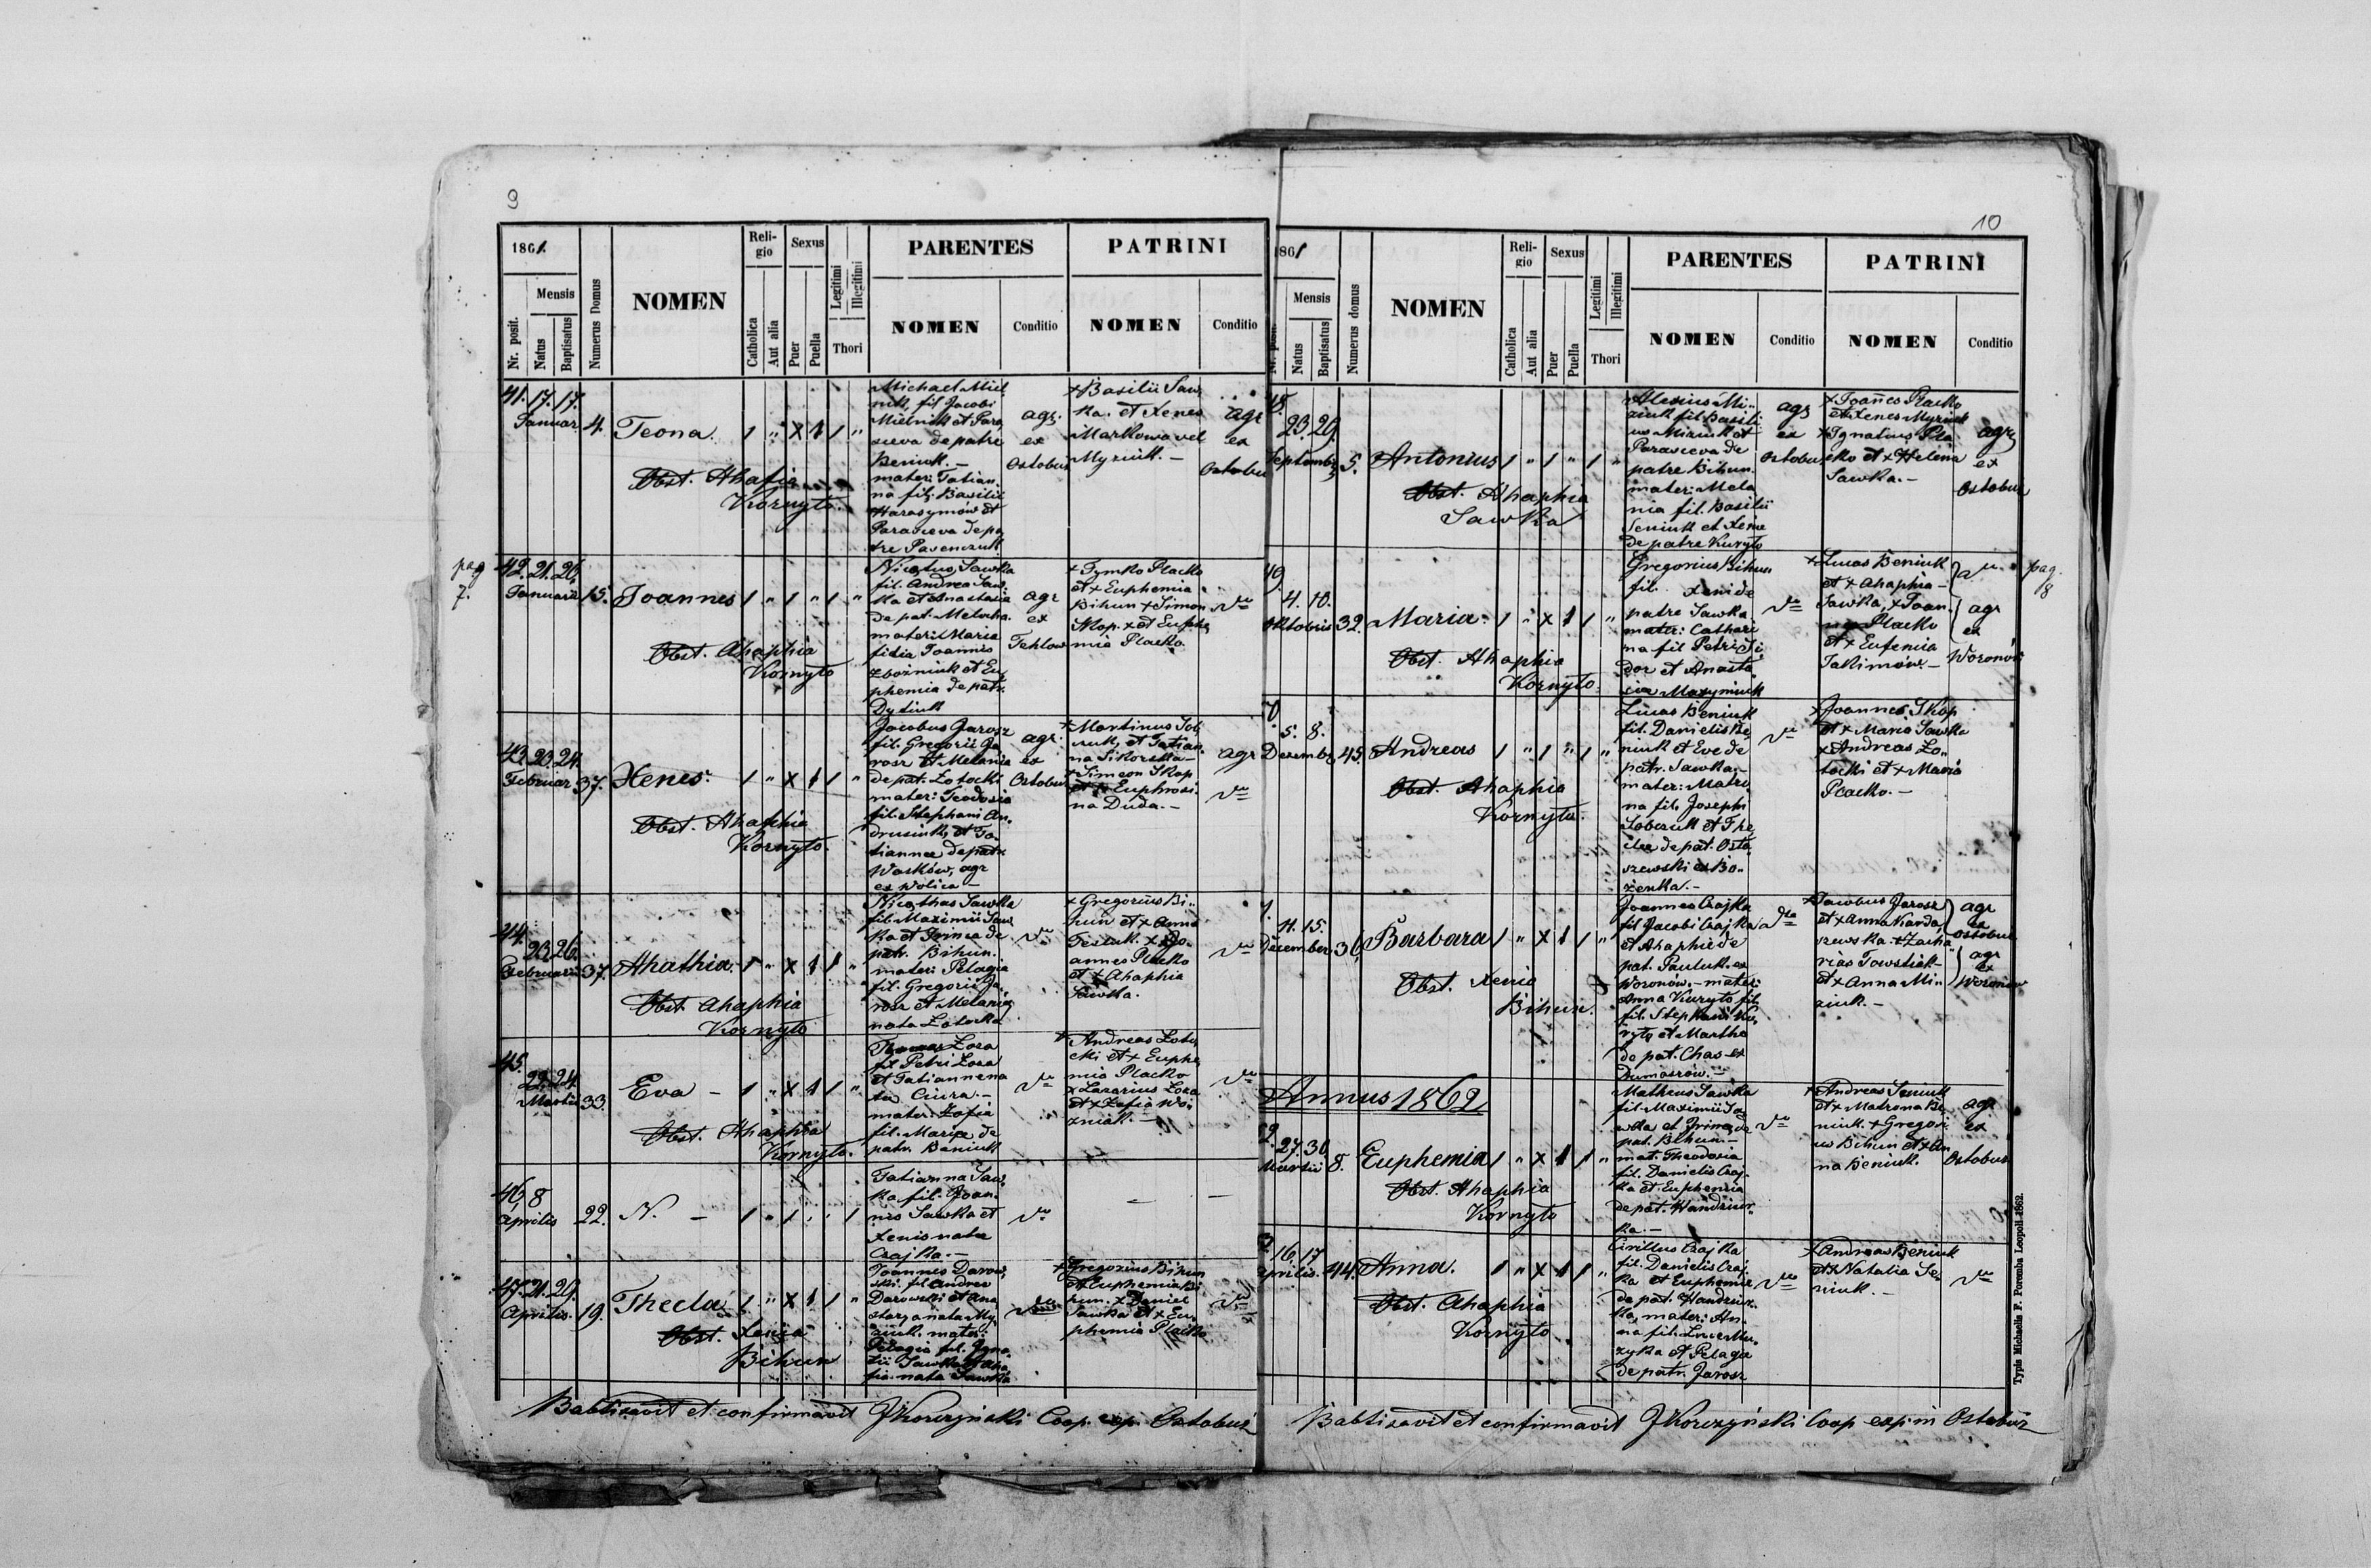 9
1861.
Nr. posit.
Mensis
Natus
Baptisatus
Numerus Domus
NOMEN
Reli-
gio
Catholica
Aut alia
Sexus
Puer
Puella
Legitimi
Illegitimi
Thori
PARENTES
NOMEN
Conditio
PATRINI
NOMEN
Conditio
41. 17. 17.
Januar. 4. Teona. 1 " x 1 1 "
Obst. Ahafia
Kornyto.
Michael Miel
nik, fil Jacobi
Mielnik et Para
sceva de patre
Beniuk. -
mater: Tatian
na fil. Basilii
Harasymow et
Parasceva de pa
tre Pasenczuk
agr.
ex
Ostobuz
+ Basilii Saw
ka. et Xenes
Markowa vel
Myziuk. -
agr
ex
Ostobuz
pag
7.
42. 21. 26.
Januarii 15. Joannes 1 " 1 " 1 "
Obst. Ahaphia
Kornyto
Nicetus Sawka
fil. Andrea Saw
ka et Anastasia
de pat. Melucha.
mater: Maria
filia Joannis
Zbożniuk et Eu
phemia de patr.
Dydiuk
agr
ex
Tehlow
+ Tymko Placko
et + Euphemia
Bihun + Simon
Skop. + et Euphe
mia Placko
dto
43. 20. 24.
Februar 37. Xenes. 1 " x 1 1 "
Obst. Ahaphia
Kornyto.
Jacobus Jarosz
fil. Gregorii Ja
rosz et Melania
de pat. Łotocki
mater: Teodosia
fil. Stephani An
drusiuk, et Ta
tiannae de patr
Waśków, agr
ex Wolica -
agr.
ex
Ostobuz
+ Martinus Sob
czuk, et Tatian
na Sikorska -
+ Simeon Skop
et + Euphrosi
na Duda. -
agr
dto
44.
23. 26.
Februarii 37. Ahathia. 1 " x 1 1 "
Obst. Ahaphia
Kornyto
Nicethas Sawka
fil. Maximii Saw
ka et Irinea de
patr. Bihun.
mater: Pelagia
fil. Gregorii Ja
rosz et Melania
nata Łotocka
dto
+ Gregorius Bi
hun et + Anna
Fesiuk. + Jo
annes Placko
et + Ahaphia
Sawka.
dto
45.
22. 24.
Martii 33. Eva - 1 " x 1 1 "
Obst. Ahaphia
Kornyto.
Thomas Łoza
fil Petri Łoza
et Tatianna na
ta Ciura. -
mater: Zofia
fil. Maria de
patr. Beniuk
dto
+ Andreas Łoto
cki et + Euphe
mia Placko
+ Lazarius Łoza
et + Zofia Wo
zniak. -
dto
46. 8
Aprilis 22. N. - 1 " 1 " " 1
Tatianna Saw
ka fil. Joan
nis Sawka et
Xenis nata
Czajka. -
dto
47. 21. 29.
Aprilis. 19. Thecla 1 " x 1 1 "
Obst. Xenia
Bihun
Joannes Darow
ski. fil Andreo
Darowski et Ana
starya nata My
ziuk. mater:
Pelagia fil. Igna
tii Sawka et Aha
fia nata Sawka
dto
+ Gregorius Bihun
et Euphemia Bi
hun. + Daniel
Sawka et + Eu
phemia Placko
dto
Babtisavit et confirmavit J Korczyński Coop. exp. Ostobuż
10
1861
Mensis
Natus
Baptisatus
Numerus domus
NOMEN
Reli-
gio
Catholica
Aut alia
Sexus
Puer
Puella
Legitimi
Illegitimi
Thori
PARENTES
NOMEN
Conditio
PATRINI
NOMEN
Conditio
23. 29.
Septembr 5. Antonius 1 " 1 " 1 "
Obst. Ahaphia
Sawka
Alexius Mi
ziuk fil. Basili
us Miziuk et
Parasceva de
patre Bihun.
mater: Mela
nia fil. Basilii
Seniuk et Xenia
de patre Kuryto
agr
ex
Ostobuz
+ Joannes Placko
et Xenes Myziuk
+ Ignatius Pla
cko et + Helena
Sawka. -
agr
ex
Ostobuz
4. 10.
Oktobris 32. Maria. 1 " x 1 1 "
Obst. Ahaphia
Kornyto.
Gregorius Bihun
fil. Xeni de
patre Sawka
mater: Cathari
na fil Petri Si
dor et Anasta
sia Maxymiuk
dto
+ Lucas Beniuk
et + Ahaphia -
Sawka, + Joan
nes Placko
et + Eufemia
Jakimów. -
dto
agr
ex
Woronów
pag.
8
5. 8.
Dezembr 45. Andreas 1 " 1 " 1 "
Obst. Ahaphia
Kornyto.
Lucas Beniuk
fil. Danielis Be
niuk et Eve de
patr. Sawka. -
mater: Matro
na fil. Josephi
Sobczuk et The
clae de pat. Osta
szewski ex Bo
żenka. -
dto
+ Joannes Skop
et + Maria Sawka
+ Andreas Ło
tocki et + Maria
Placko. -
11. 15.
December 36 Barbara 1 " x 1 1 "
Obst. Xenia
Bihun.
Joannes Czajka
fil Jacobi Czajka
et Ahaphie de
pat. Pauluk. ex
Woronów. - mater:
Anna Kuryto fil
fil. Stephani Ku
ryto et Martha
de pat. Chas ex
Domaszów. -
dto
+ Jacobus Jarosz
et + Anna Karda
szewska. + Zacha
rias Towstiuk
et + Anna Mi
ziuk. -
agr
ex
Ostobuz
agr
ex
Woronów
Annus 1862
27. 30
Martii 8. Euphemia 1 " x 1 1 "
Obst. Ahaphia
Kornyto
Matheus Sawka
fil. Maximii Sa
wka et Irinea de
pat. Bihun. -
mat. Theodozia
fil. Danielis Czaj
ka et Euphemia
de pat. Handziur
ka. -
dto
+ Andreas Seniuk
et + Matrona Be
niuk. + Gregori
us Bihun et + An
na Beniuk.
agr
ex
Ostobuz
16 17
Aprilis. 44. Anna. 1 " x 1 1 "
Obst. Ahaphia
Kornyto
Cirillus Czajka
fil. Danielis Czaj
ka et Euphemia
de pat. Handziur
ka, mater: An
na fil. Lucae Mu
zyka et Pelagia
de patr. Jarosz
dto
+ Andreas Beniuk
et + Natalia Se
niuk. -
dto
Babtisavit et confirmavit J Korczyński Coop exp. in Ostobuż
Typis Michaelis F. Poremba Leopoli 1862.